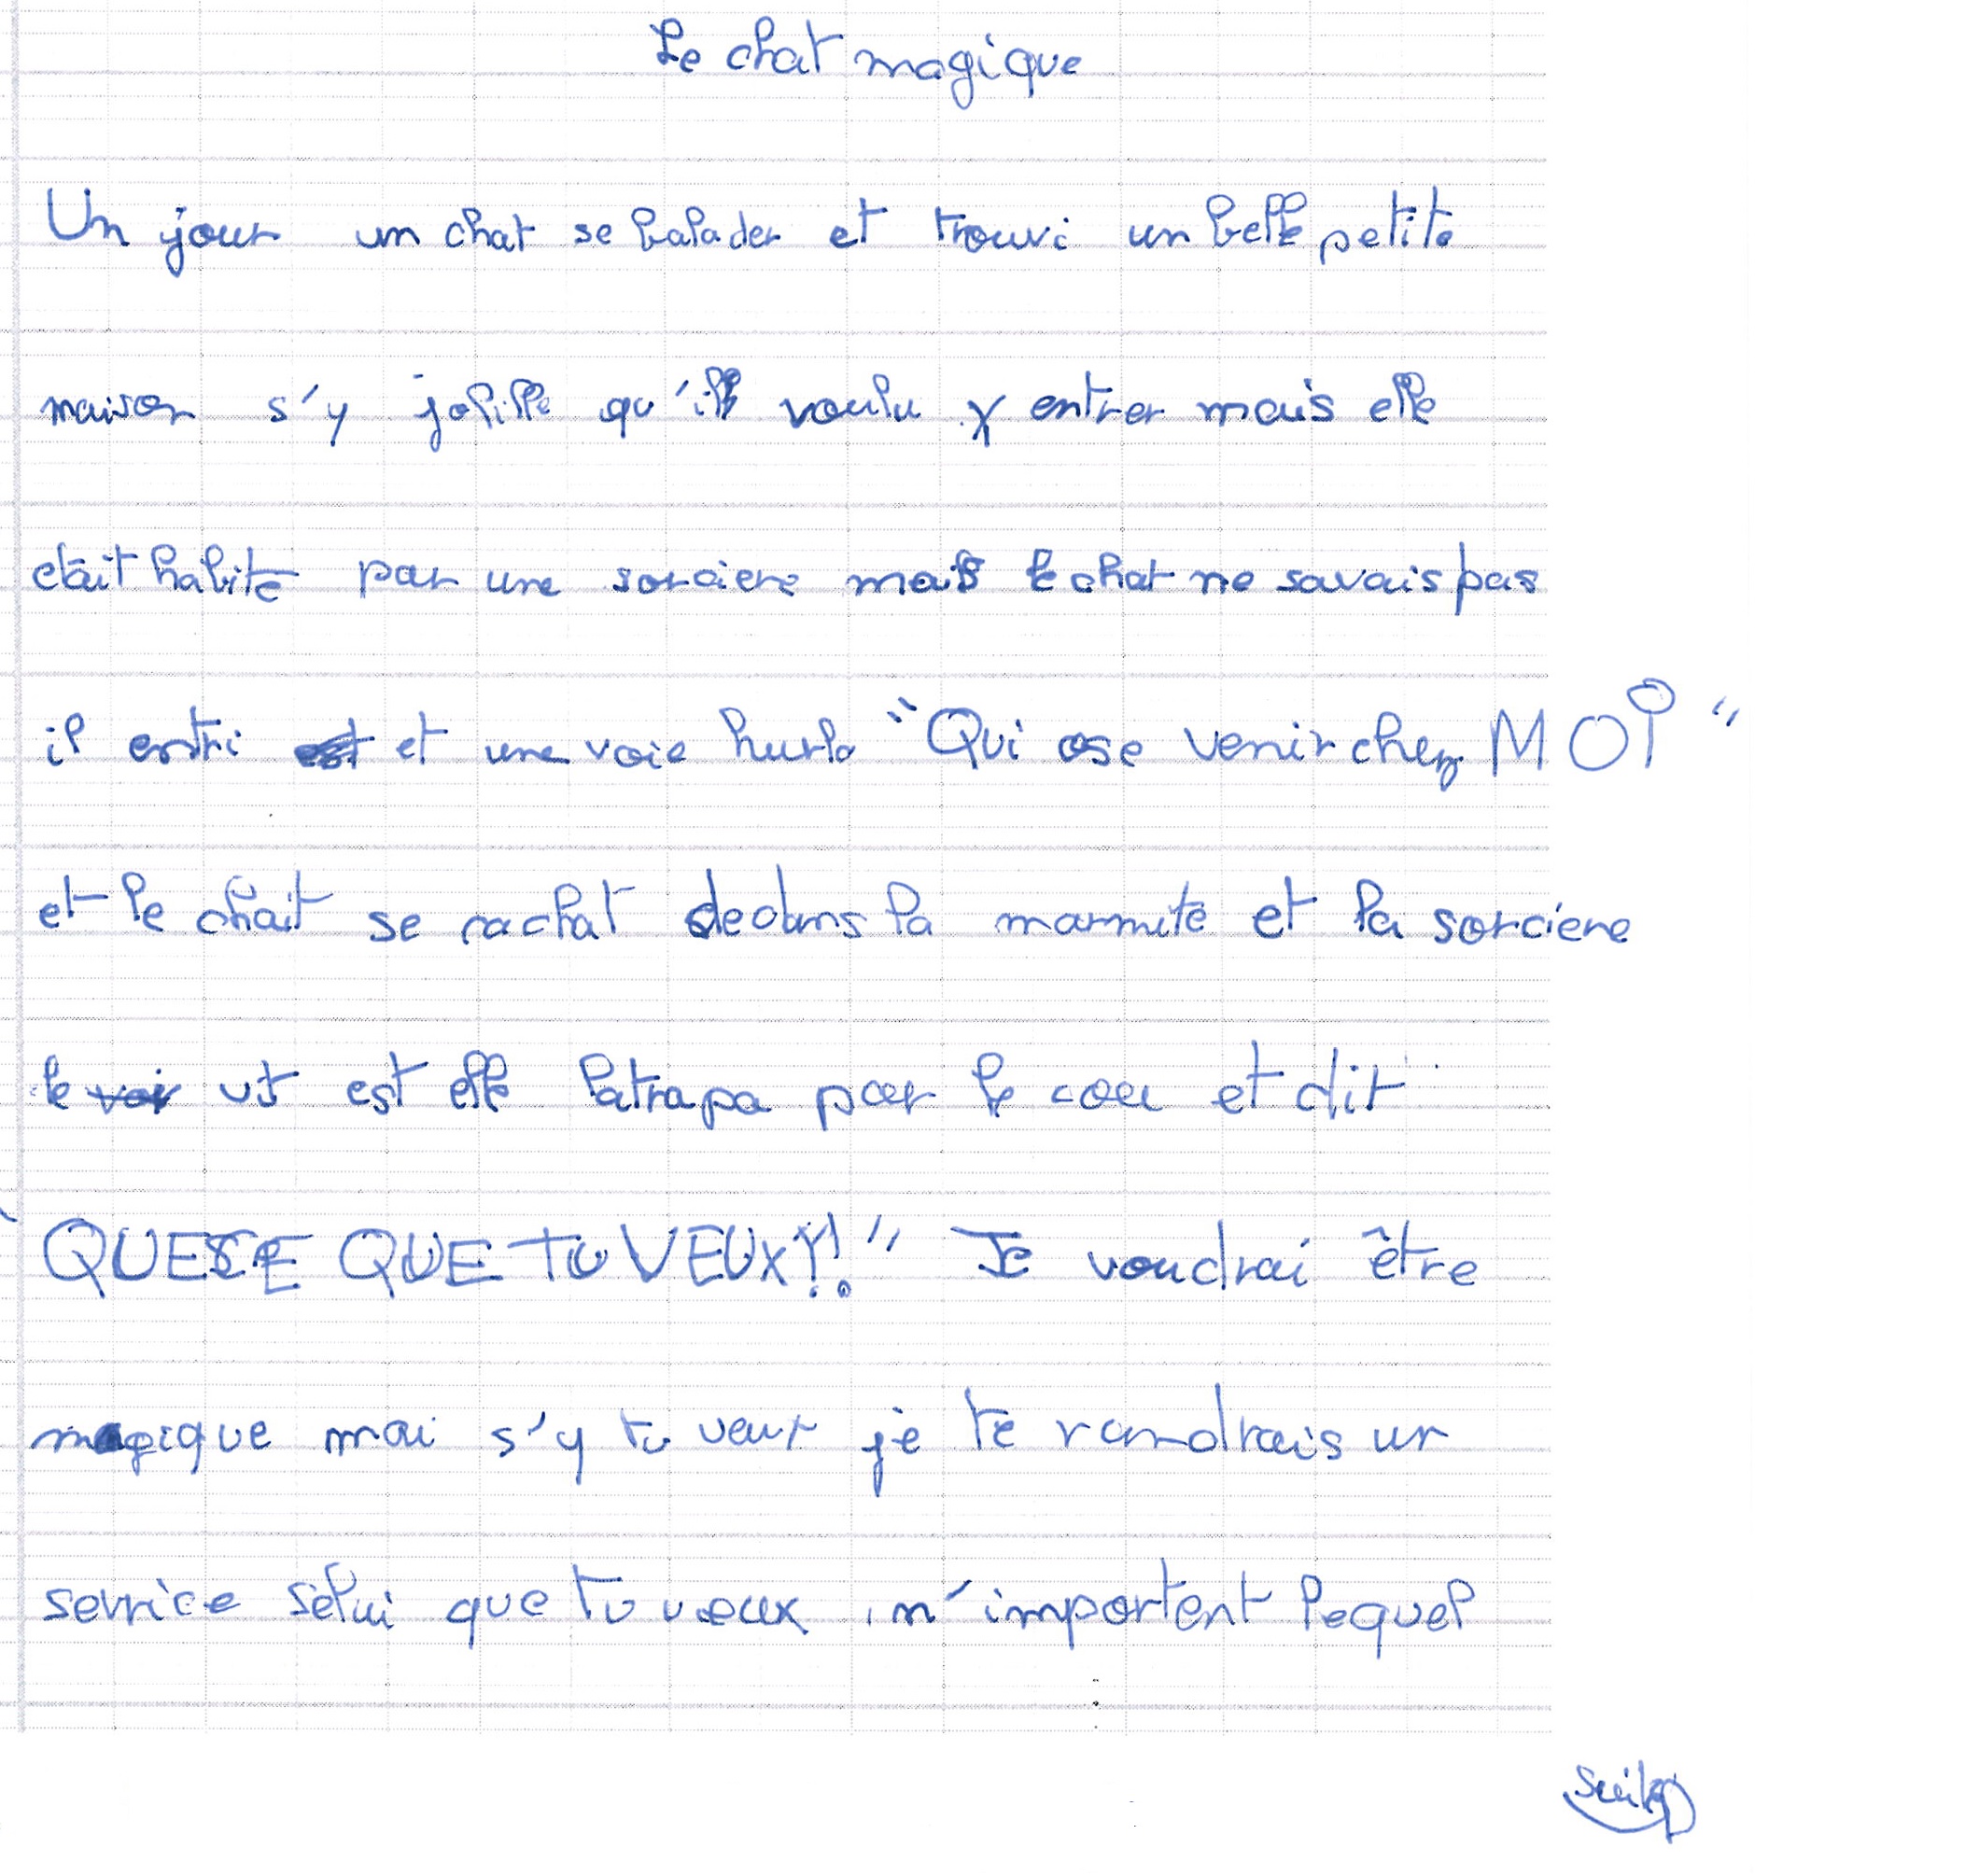 Le chat magique
Un jour un chat se balader et trouvi un belle petite
maison s'y jolille qu'il voulu y entrer mais elle
était habite par une sorciere mais le chat ne savais pas
il entri et une voie hurla "Qui ose venir chez MOI"
et le chait se cachat dedans la marmite et la sorciere
le vit est elle latrapa par le cou et dit
"QUESE QUE TU VEUX?!" Je voudrai être
magique moi s'y tu veux je te randrais un
service selui que tu veux n'important lequel